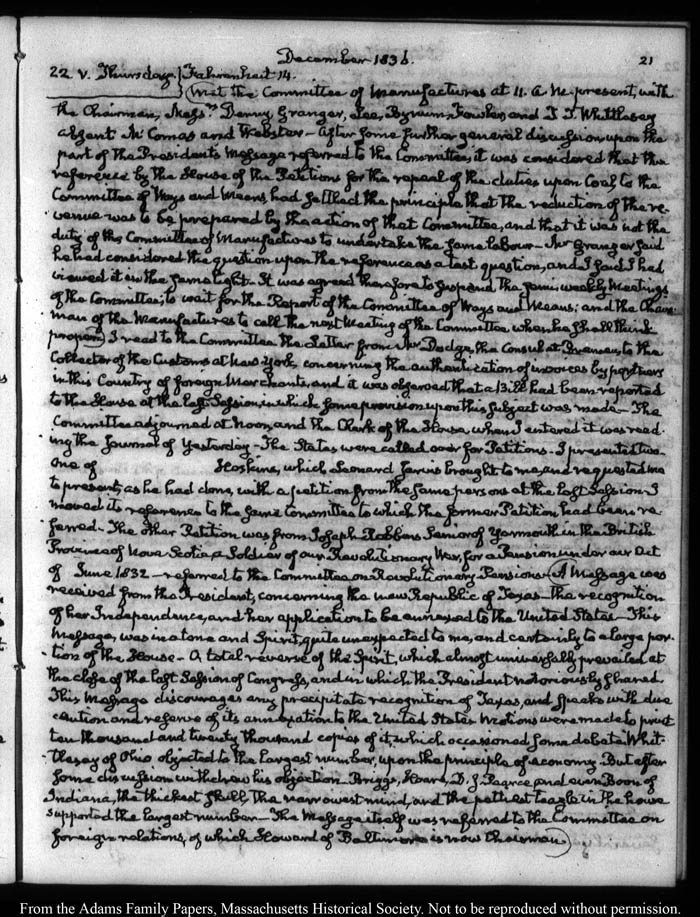 December 1836.
21
22. V. Thursday. Fahrenheit 14.
(Met the Committee of Manufactures at 11. A M. present, with
the Chairman, Mess.rs Denny, Granger, Lee, Bynum, Fowler, and T. T. Whittlesey
absent McComas and Webster. After some further general discussion upon the
part of the President's Message referred to the Committee, it was considered that the
reference by the House of the Petitions for the repeal of the duties upon Coal, to the
Committee of Ways and Means, had settled the principle that the reduction of the re-
venue was to be prepared by the action of that Committee, and that it was not the
duty of the Committee of Manufactures to undertake the same labour— Mr Granger said
he had considered the question upon the reference as a test question, and I said I had
viewed it in the same light— It was agreed therefore to suspend the semi-weekly Meetings
of the Committee; to wait for the Report of the Committee of Ways and Means; and the Chair-
man of the Manufactures to call the next Meeting of the Committee when he shall think
proper) I read to the Committee the Letter from Mr Dodge, the Consul at Bremen, to the
Collector of the Customs at New York, concerning the authentication of invoices by partners
in this Country of foreign Merchants, and it was observed that a Bill had been reported
to the House at the last Session, in which some provision upon this subject was made— The
Committee adjourned at Noon, and the Clerk of the House, when I entered it was read-
ing the Journal of Yesterday— The States were called over for Petitions. I presented two.
One of Hoskins, which Leonard Jarvis brought to me, and requested me
to present, as he had done, with a petition from the same persons at the last Session. I
moved its reference to the same Committee to which the former Petition had been re-
ferred— The other Petition was from Joseph Robbins Senior of Yarmouth in the British
Province of Nova Scotia, a Soldier of our Revolutionary War, for a Pension under our Act
of June 1832— referred to the Committee on Revolutionary Pensions— (A Message was
received from the President, concerning the new Republic of Texas— the recognition
of her Independence, and her application to be annexed to the United States— This
Message, was in a tone and Spirit, quite unexpected to me, and certainly to a large por-
tion of the House— A total reverse of the Spirit, which almost universally prevailed at
the close of the last Session of Congress, and in which the President notoriously shared.
This Message discourages any precipitate recognition of Texas, and speaks with due
caution and reserve of its annexation to the United States Motions were made to print
ten thousand and twenty thousand copies of it, which occasioned some debate. Whit-
tlesey of Ohio objected to the largest number, upon the principle of economy— But after
some discussion withdrew his objection— Briggs, Hoar, D. J. Pearce, and even Boon of
Indiana, the thickest skull, the narrowest mind, and the in the house
supported the largest number— The Message itself was referred to the Committee on
foreign relations, of which Howard of Baltimore is now Chairman)
From the Adams Family Papers, Massachusetts Historical Society. Not to be reproduced without permission.